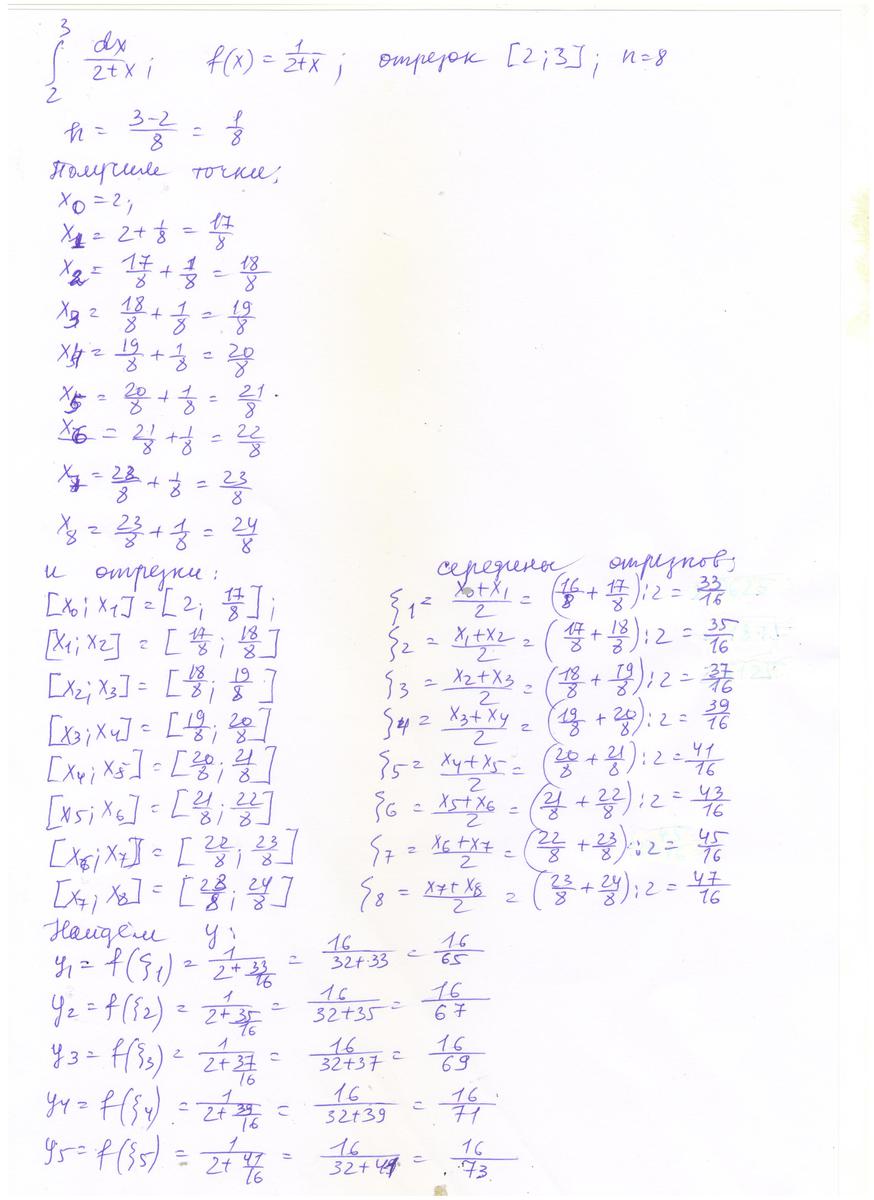 ∫₂³ dx/(2+x); f(x) = 1/(2+x); отрезок [2;3]; n=8
h = (3-2)/8 = 1/8
Получим точки;
x₀ = 2;
x₁ = 2 + 1/8 = 17/8
x₂ = 17/8 + 1/8 = 18/8
x₃ = 18/8 + 1/8 = 19/8
x₄ = 19/8 + 1/8 = 20/8
x₅ = 20/8 + 1/8 = 21/8
x₆ = 21/8 + 1/8 = 22/8
x₇ = 22/8 + 1/8 = 23/8
x₈ = 23/8 + 1/8 = 24/8
и отрезки:
[x₀; x₁] = [2; 17/8];
[x₁; x₂] = [17/8; 18/8]
[x₂; x₃] = [18/8; 19/8]
[x₃; x₄] = [19/8; 20/8]
[x₄; x₅] = [20/8; 21/8]
[x₅; x₆] = [21/8; 22/8]
[x₆; x₇] = [22/8; 23/8]
[x₇; x₈] = [23/8; 24/8]
середины отрезков;
ξ₁ = (x₀+x₁)/2 = (16/8 + 17/8):2 = 33/16
ξ₂ = (x₁+x₂)/2 = (17/8 + 18/8):2 = 35/16
ξ₃ = (x₂+x₃)/2 = (18/8 + 19/8):2 = 37/16
ξ₄ = (x₃+x₄)/2 = (19/8 + 20/8):2 = 39/16
ξ₅ = (x₄+x₅)/2 = (20/8 + 21/8):2 = 41/16
ξ₆ = (x₅+x₆)/2 = (21/8 + 22/8):2 = 43/16
ξ₇ = (x₆+x₇)/2 = (22/8 + 23/8):2 = 45/16
ξ₈ = (x₇+x₈)/2 = (23/8 + 24/8):2 = 47/16
Найдём y:
y₁ = f(ξ₁) = 1/(2+33/16) = 16/(32+33) = 16/65
y₂ = f(ξ₂) = 1/(2+35/16) = 16/(32+35) = 16/67
y₃ = f(ξ₃) = 1/(2+37/16) = 16/(32+37) = 16/69
y₄ = f(ξ₄) = 1/(2+39/16) = 16/(32+39) = 16/71
y₅ = f(ξ₅) = 1/(2+41/16) = 16/(32+41) = 16/73